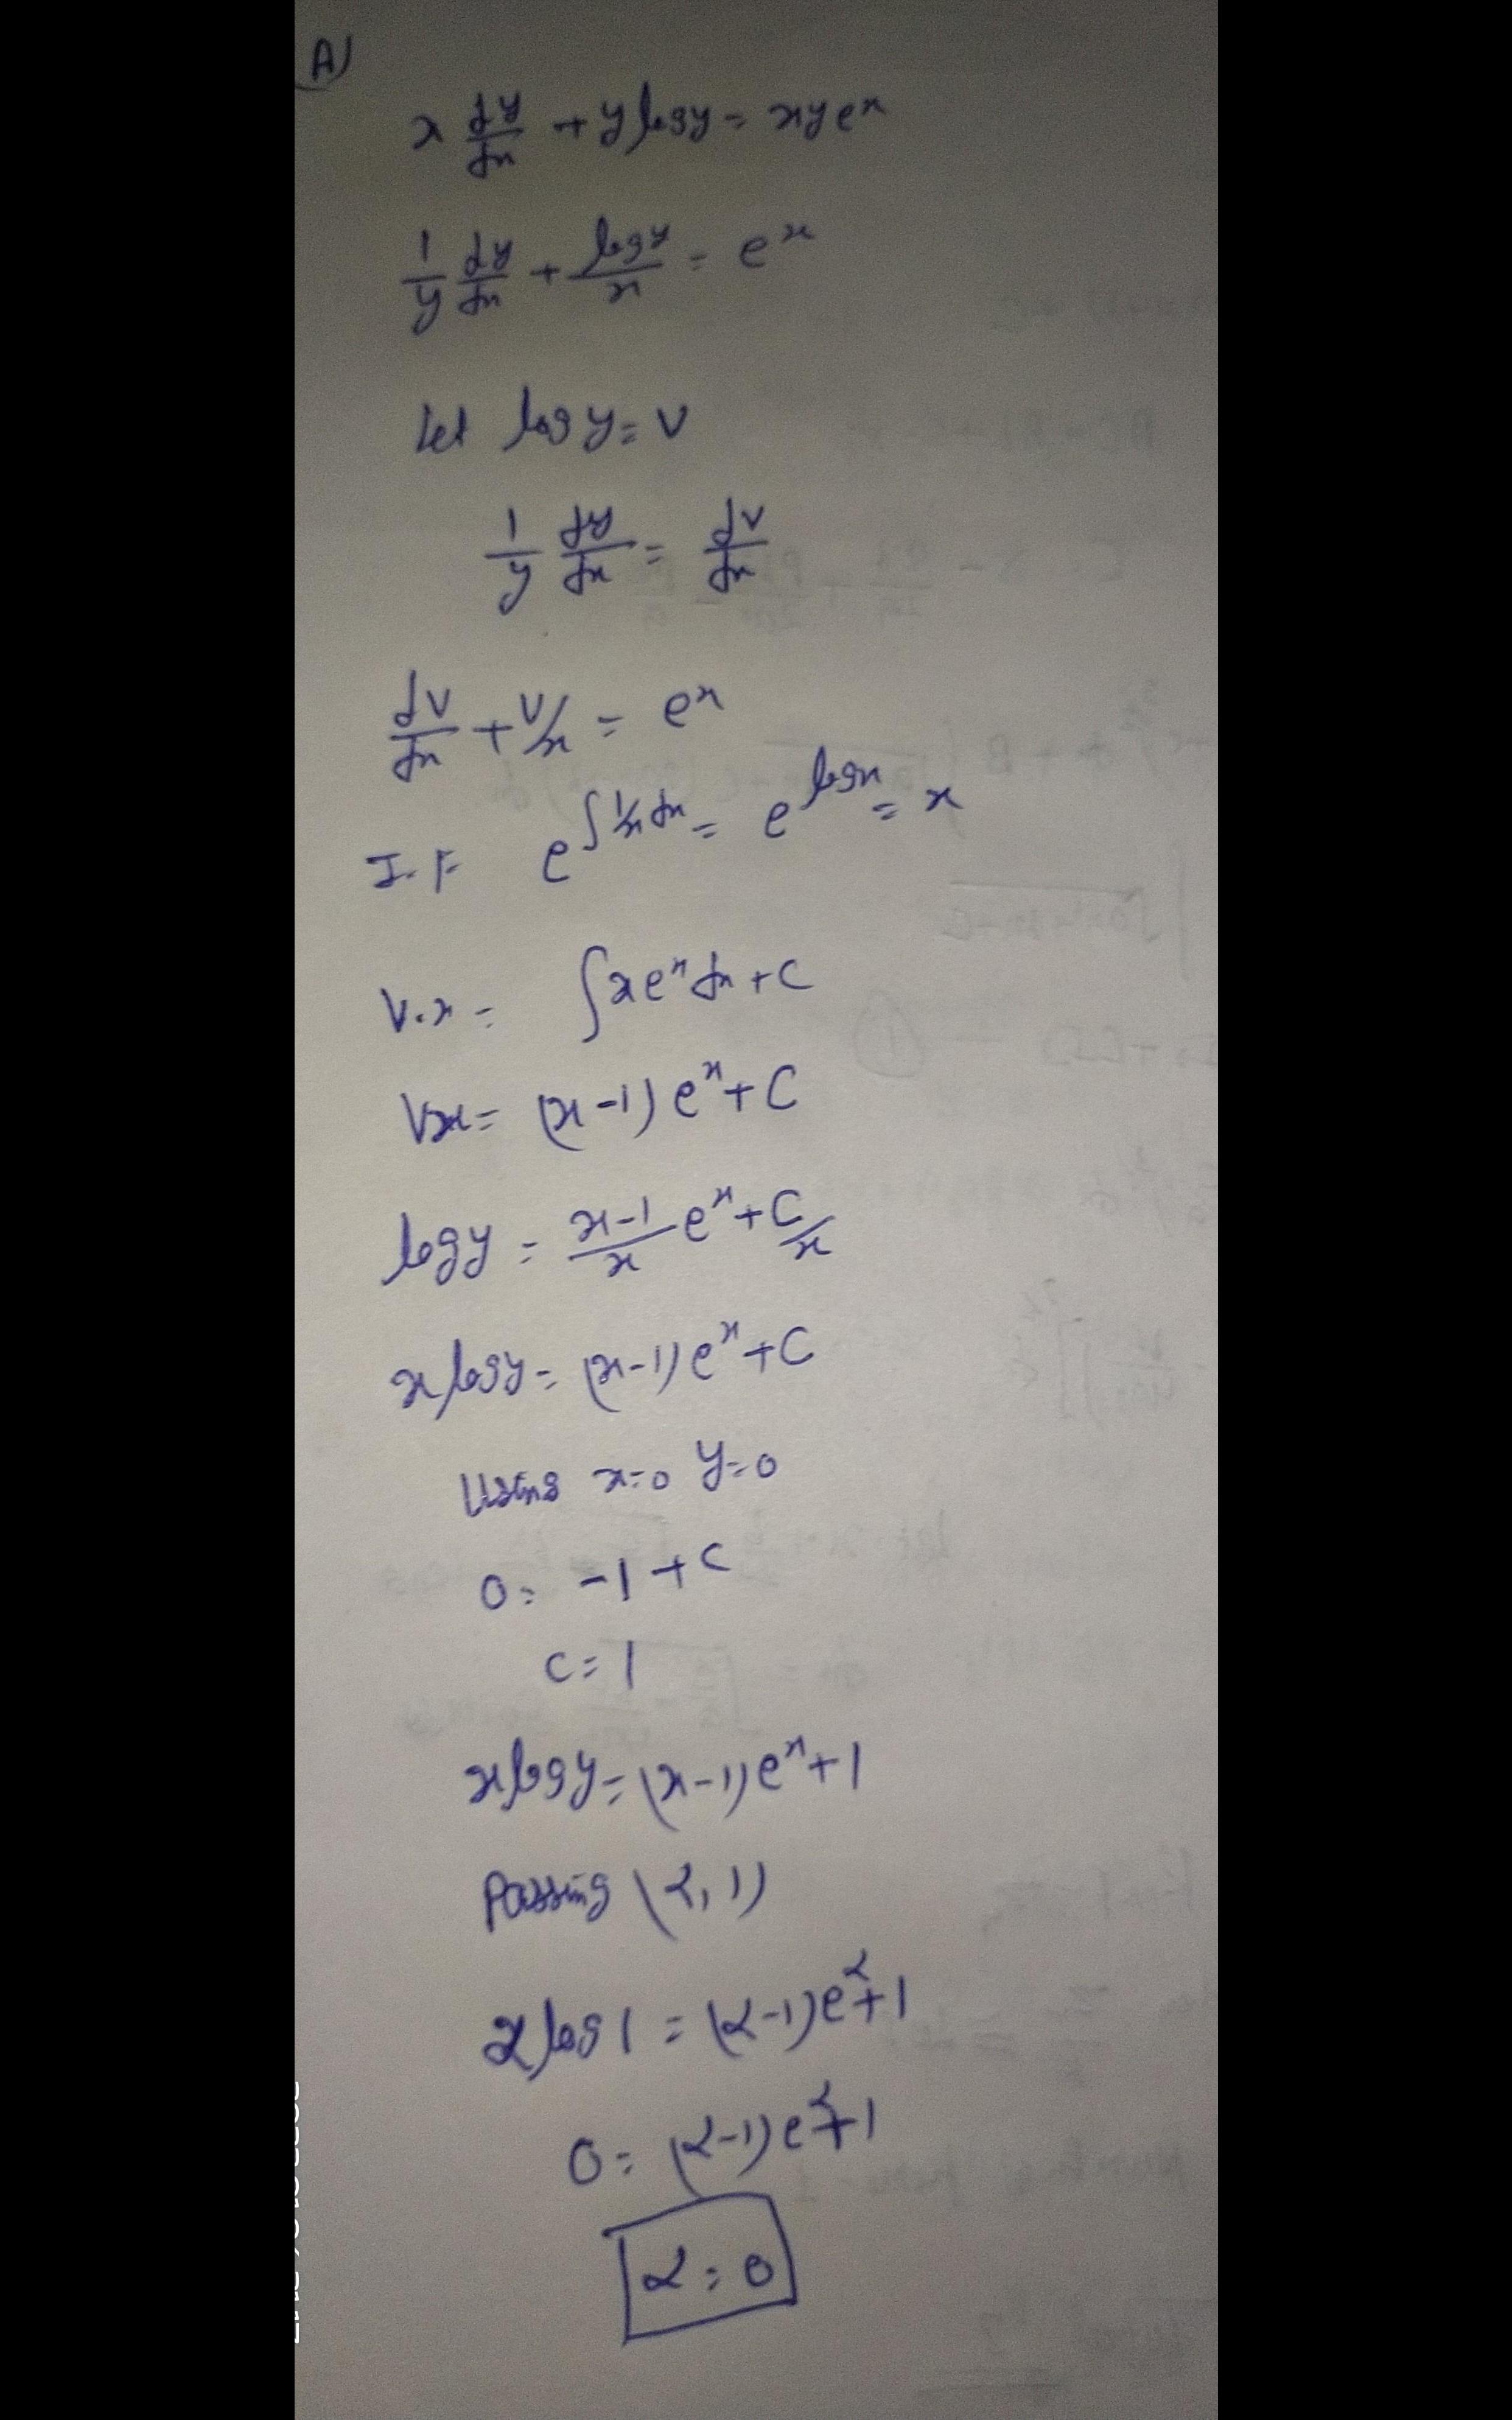 A)
x dy/dx + y log y = xy e^x
1/y dy/dx + log y/x = e^x
Let log y = v
1/y dy/dx = dv/dx
dv/dx + v/x = e^x
I.F e^∫1/x dx = e^log x = x
V.x = ∫x e^x dx + C
Vx = (x-1) e^x + C
log y = x-1/x e^x + C/x
x log y = (x-1) e^x + C
Using x=0 y=0
0 = -1 + C
C = 1
x log y = (x-1) e^x + 1
Passing (α, 1)
α log 1 = (α-1) e^α + 1
0 = (α-1) e^α + 1
α = 0